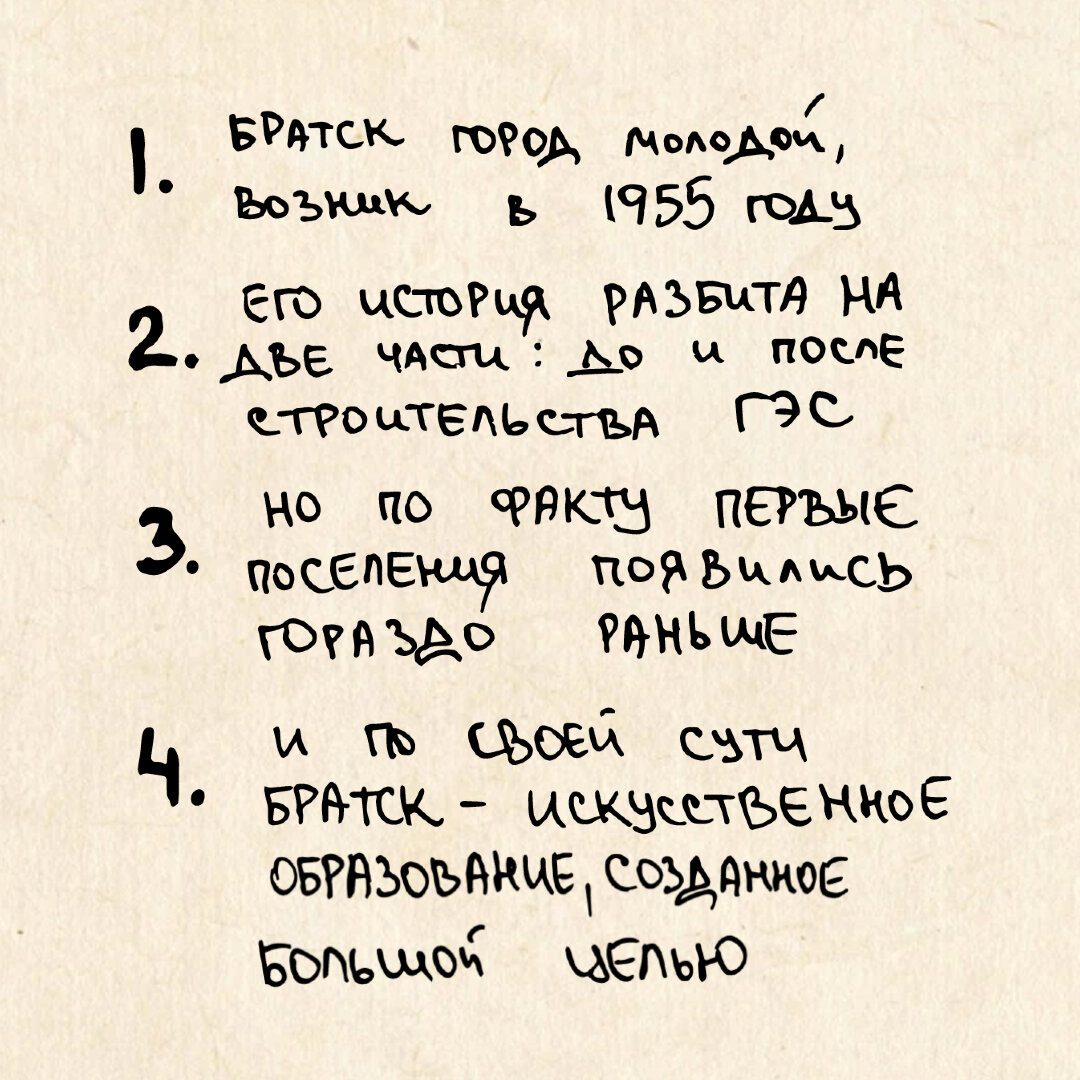 1. БРАТСК ГОРОД МОЛОДОЙ,
ВОЗНИК В 1955 ГОДУ
2. ЕГО ИСТОРИЯ РАЗБИТА НА
ДВЕ ЧАСТИ: ДО И ПОСЛЕ
СТРОИТЕЛЬСТВА ГЭС
3. НО ПО ФАКТУ ПЕРВЫЕ
ПОСЕЛЕНИЯ ПОЯВИЛИСЬ
ГОРАЗДО РАНЬШЕ
4. И ПО СВОЕЙ СУТИ
БРАТСК - ИСКУССТВЕННОЕ
ОБРАЗОВАНИЕ, СОЗДАННОЕ
БОЛЬШОЙ ЦЕЛЬЮ